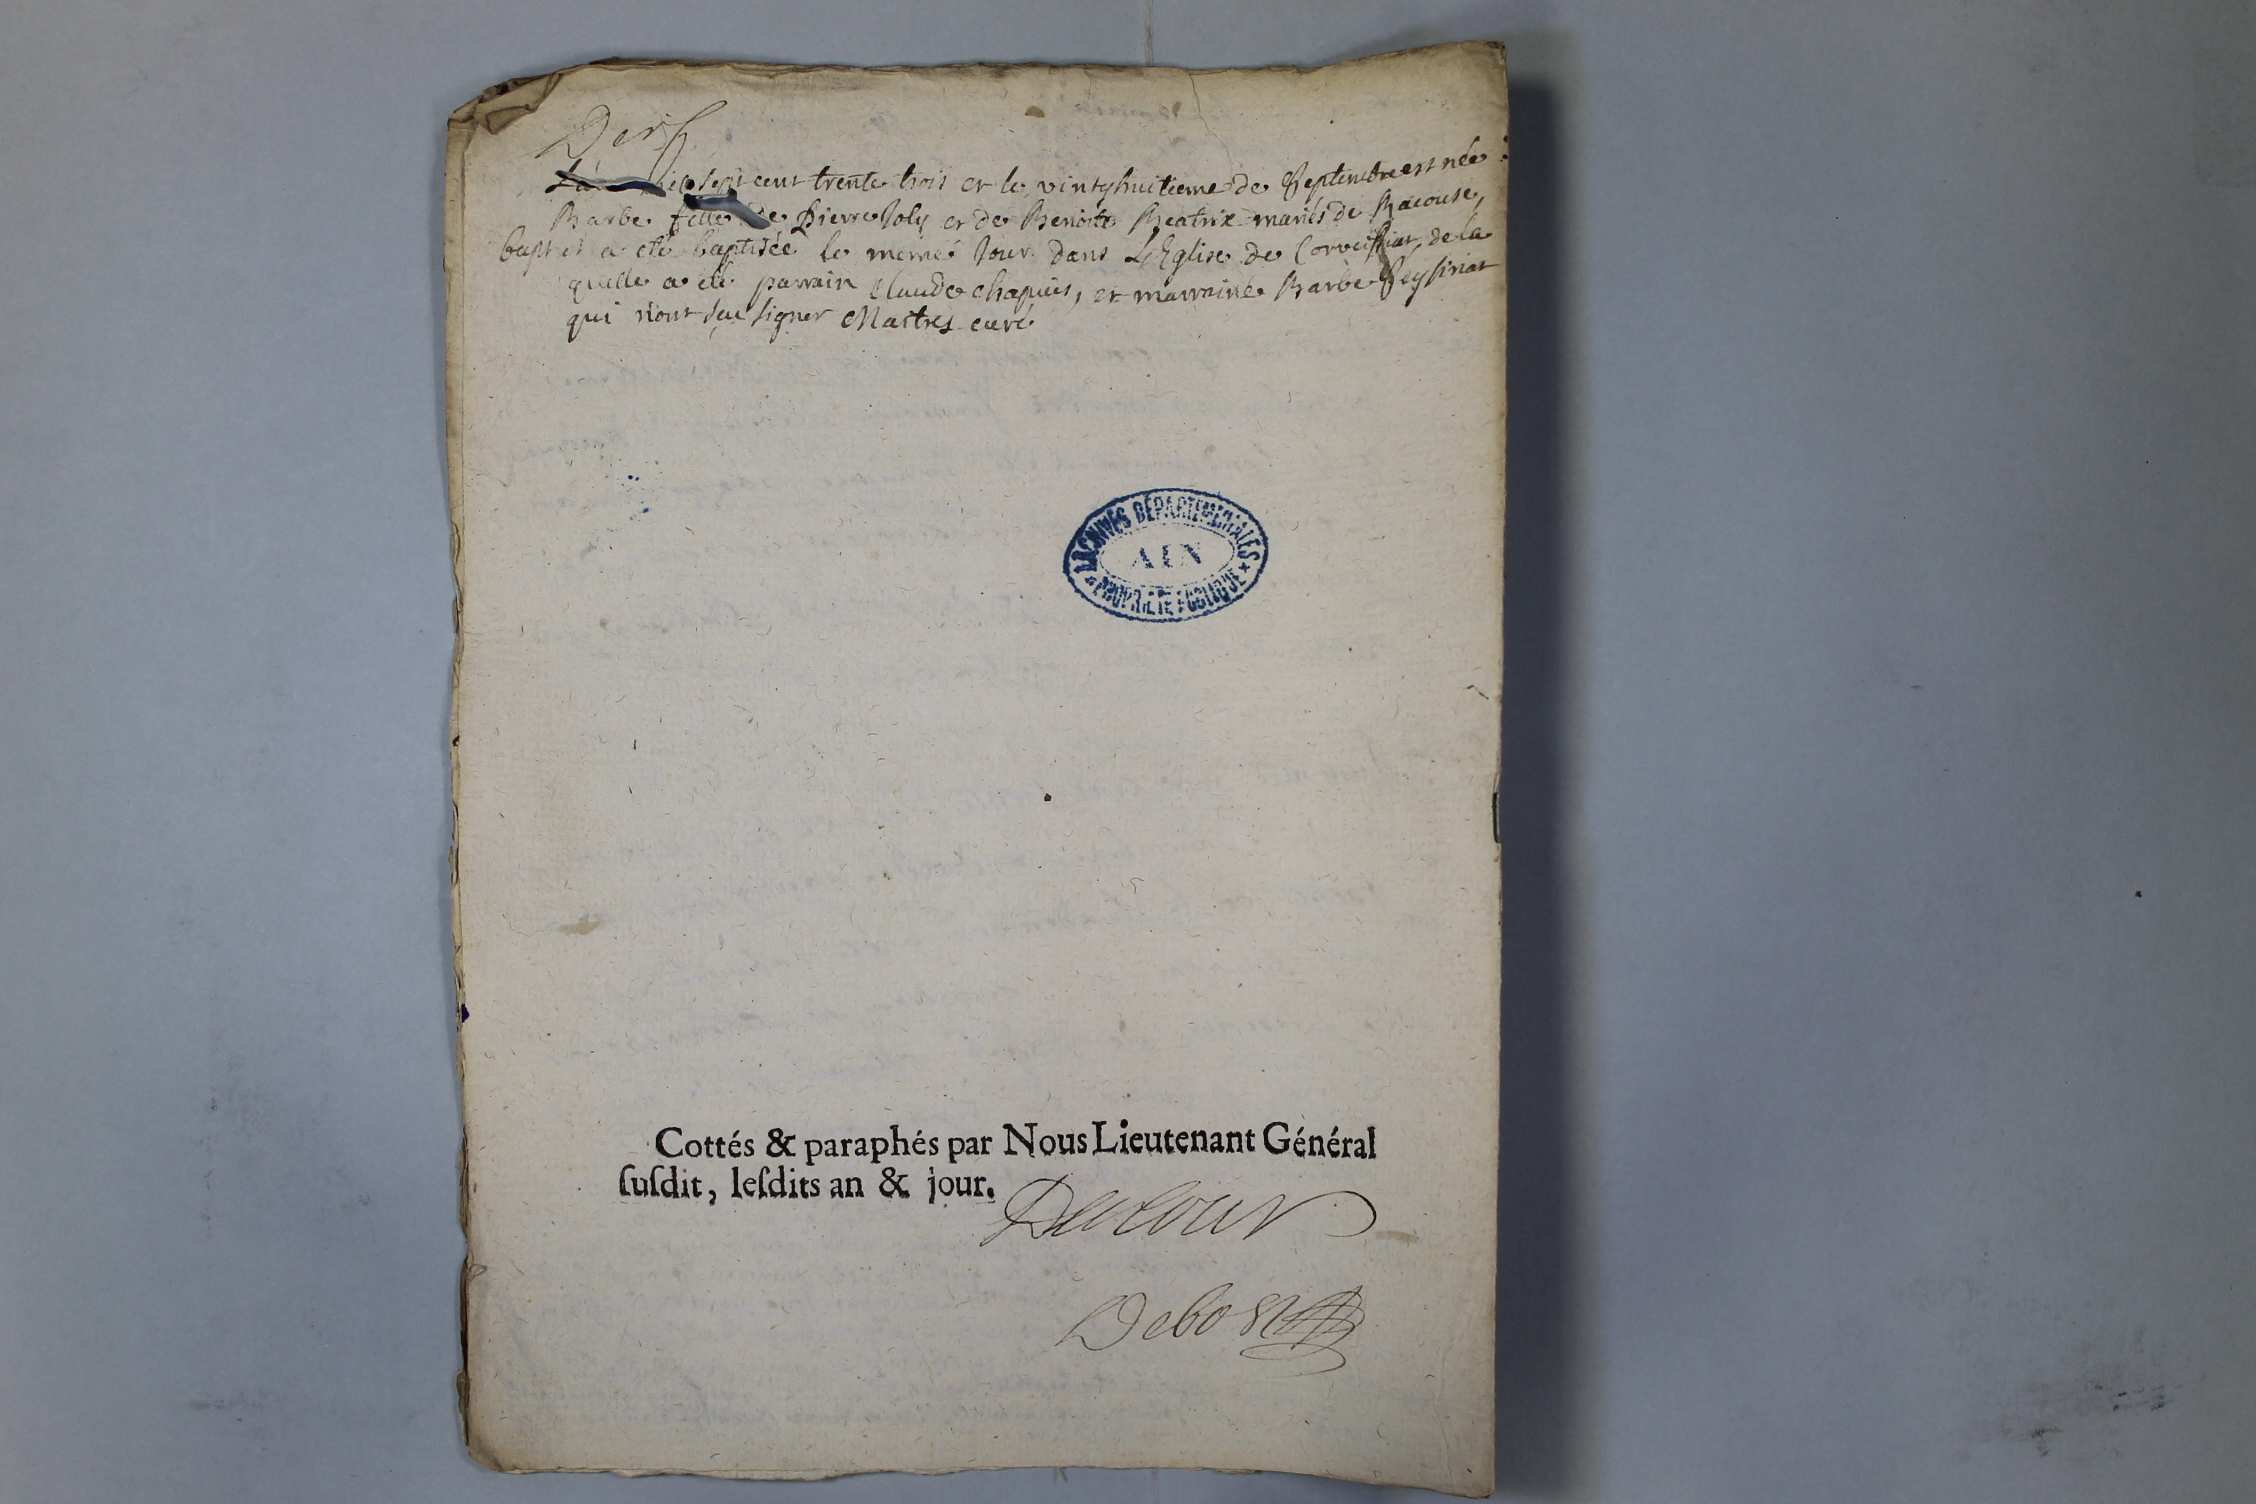 Der
mil sept cent trente trois et le vintghuitieme de Septembre est née
Barbe fille de Pierre Joly et de Benoite Beatrix mariés de Racouse,
bapt et a eté baptisée le meme Jour dans L'Eglise de Corveissiat, de la
quelle a eté parrain Claude Chapuis, et marraine Barbe Peysinat
qui n'ont sçu signer Maitres curé
ARCHIVES DÉPARTEMENTALES
AIN
PROPRIÉTÉ PUBLIQUE
Cottés & paraphés par Nous Lieutenant Général
ſuſdit, leſdits an & jour.
Debost